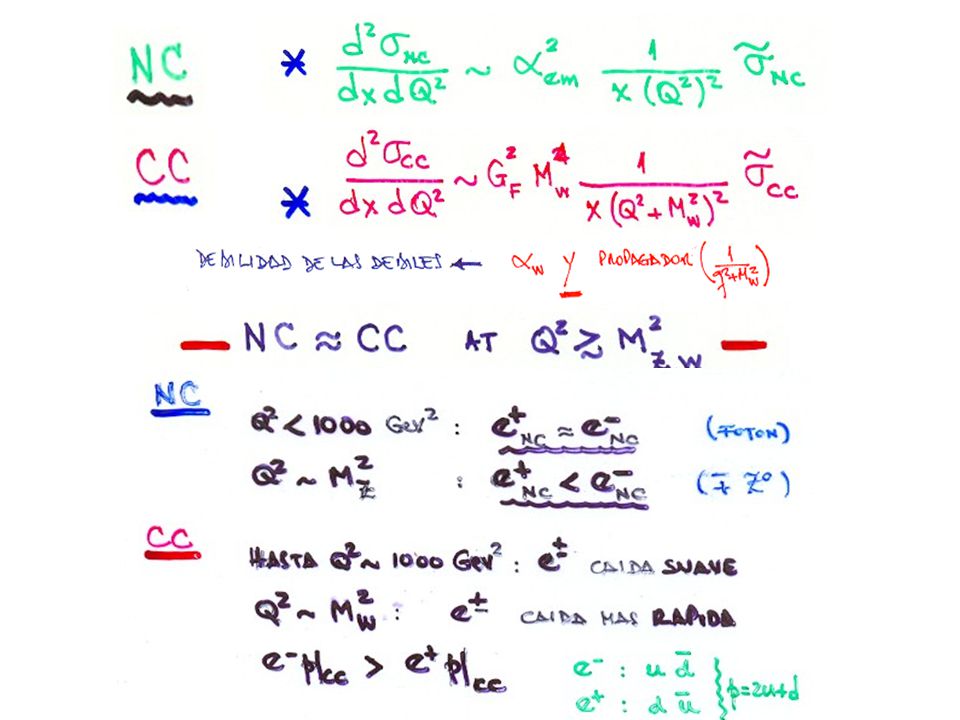 NC * d²σ_NC / dx dQ² ~ α²_em 1 / x (Q²)² σ̃_NC
CC * d²σ_CC / dx dQ² ~ G_F² M_W⁴ 1 / x (Q² + M_W²)² σ̃_CC
DEBILIDAD DE LAS DEBILES ← α_W Y PROPAGADOR ( 1 / q²+M_W² )
— NC ≈ CC AT Q² ≳ M²_Z,W —
NC
Q² < 1000 GeV² : e⁺_NC ≈ e⁻_NC (FOTON)
Q² ~ M_Z² : e⁺_NC < e⁻_NC (∓ Z⁰)
CC
HASTA Q² ~ 1000 GeV² : e± CAIDA SUAVE
Q² ~ M_W² : e± CAIDA MAS RAPIDA
e⁻p|cc > e⁺p|cc
e⁻ : u d̄
e⁺ : d ū } p=2u+d